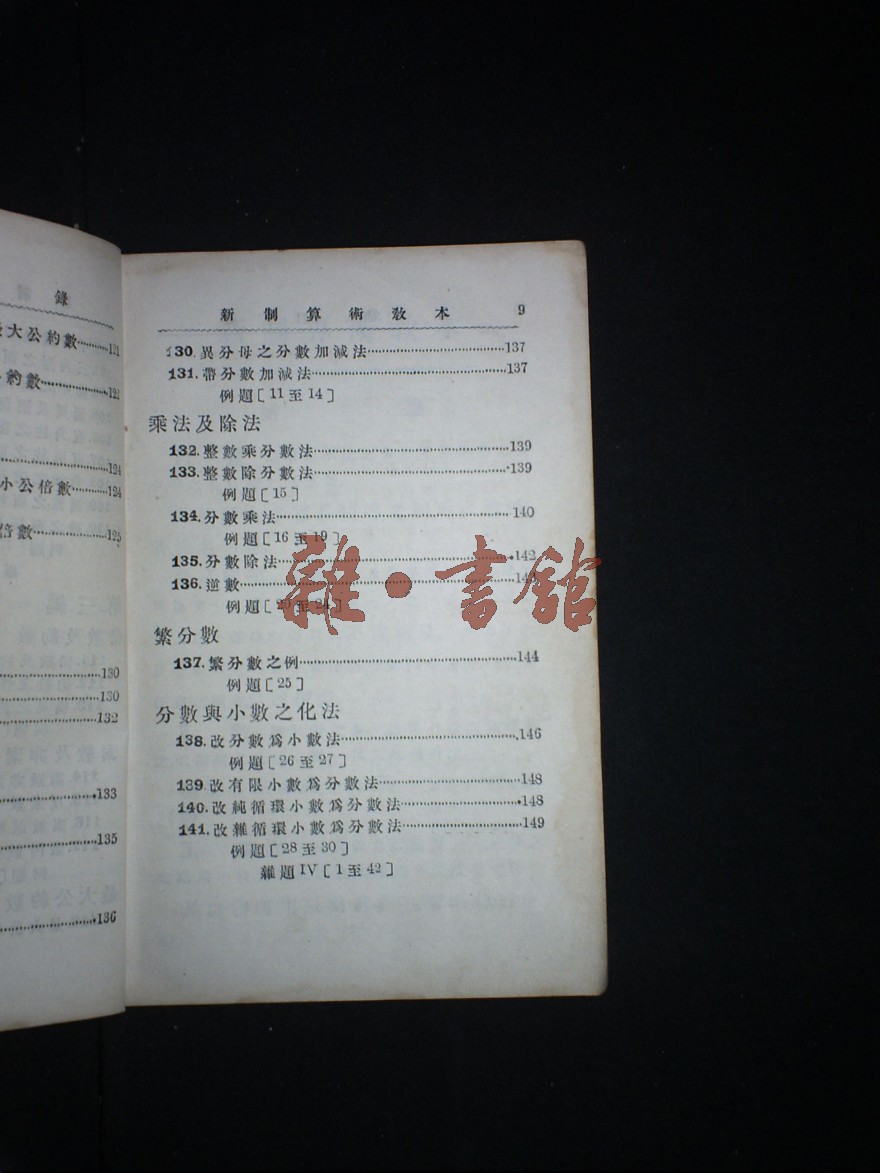 錄
大公約數………131
約數…………122
…………124
小公倍數………124
倍數…………125
…………130
…………130
…………132
…………133
…………135
…………136
新制算術教本 9
130.異分母之分數加減法…………137
131.帶分數加減法…………137
例題[11至14]
乘法及除法
132.整數乘分數法…………139
133.整數除分數法…………139
例題[15]
134.分數乘法…………140
例題[16至19]
135.分數除法…………142
136.逆數…………143
例題[20至24]
繁分數
137.繁分數之例…………144
例題[25]
分數與小數之化法
138.改分數爲小數法…………146
例題[26至27]
139.改有限小數爲分數法…………148
140.改純循環小數爲分數法…………148
141.改雜循環小數爲分數法…………149
例題[28至30]
雜題IV[1至42]
雜·書館